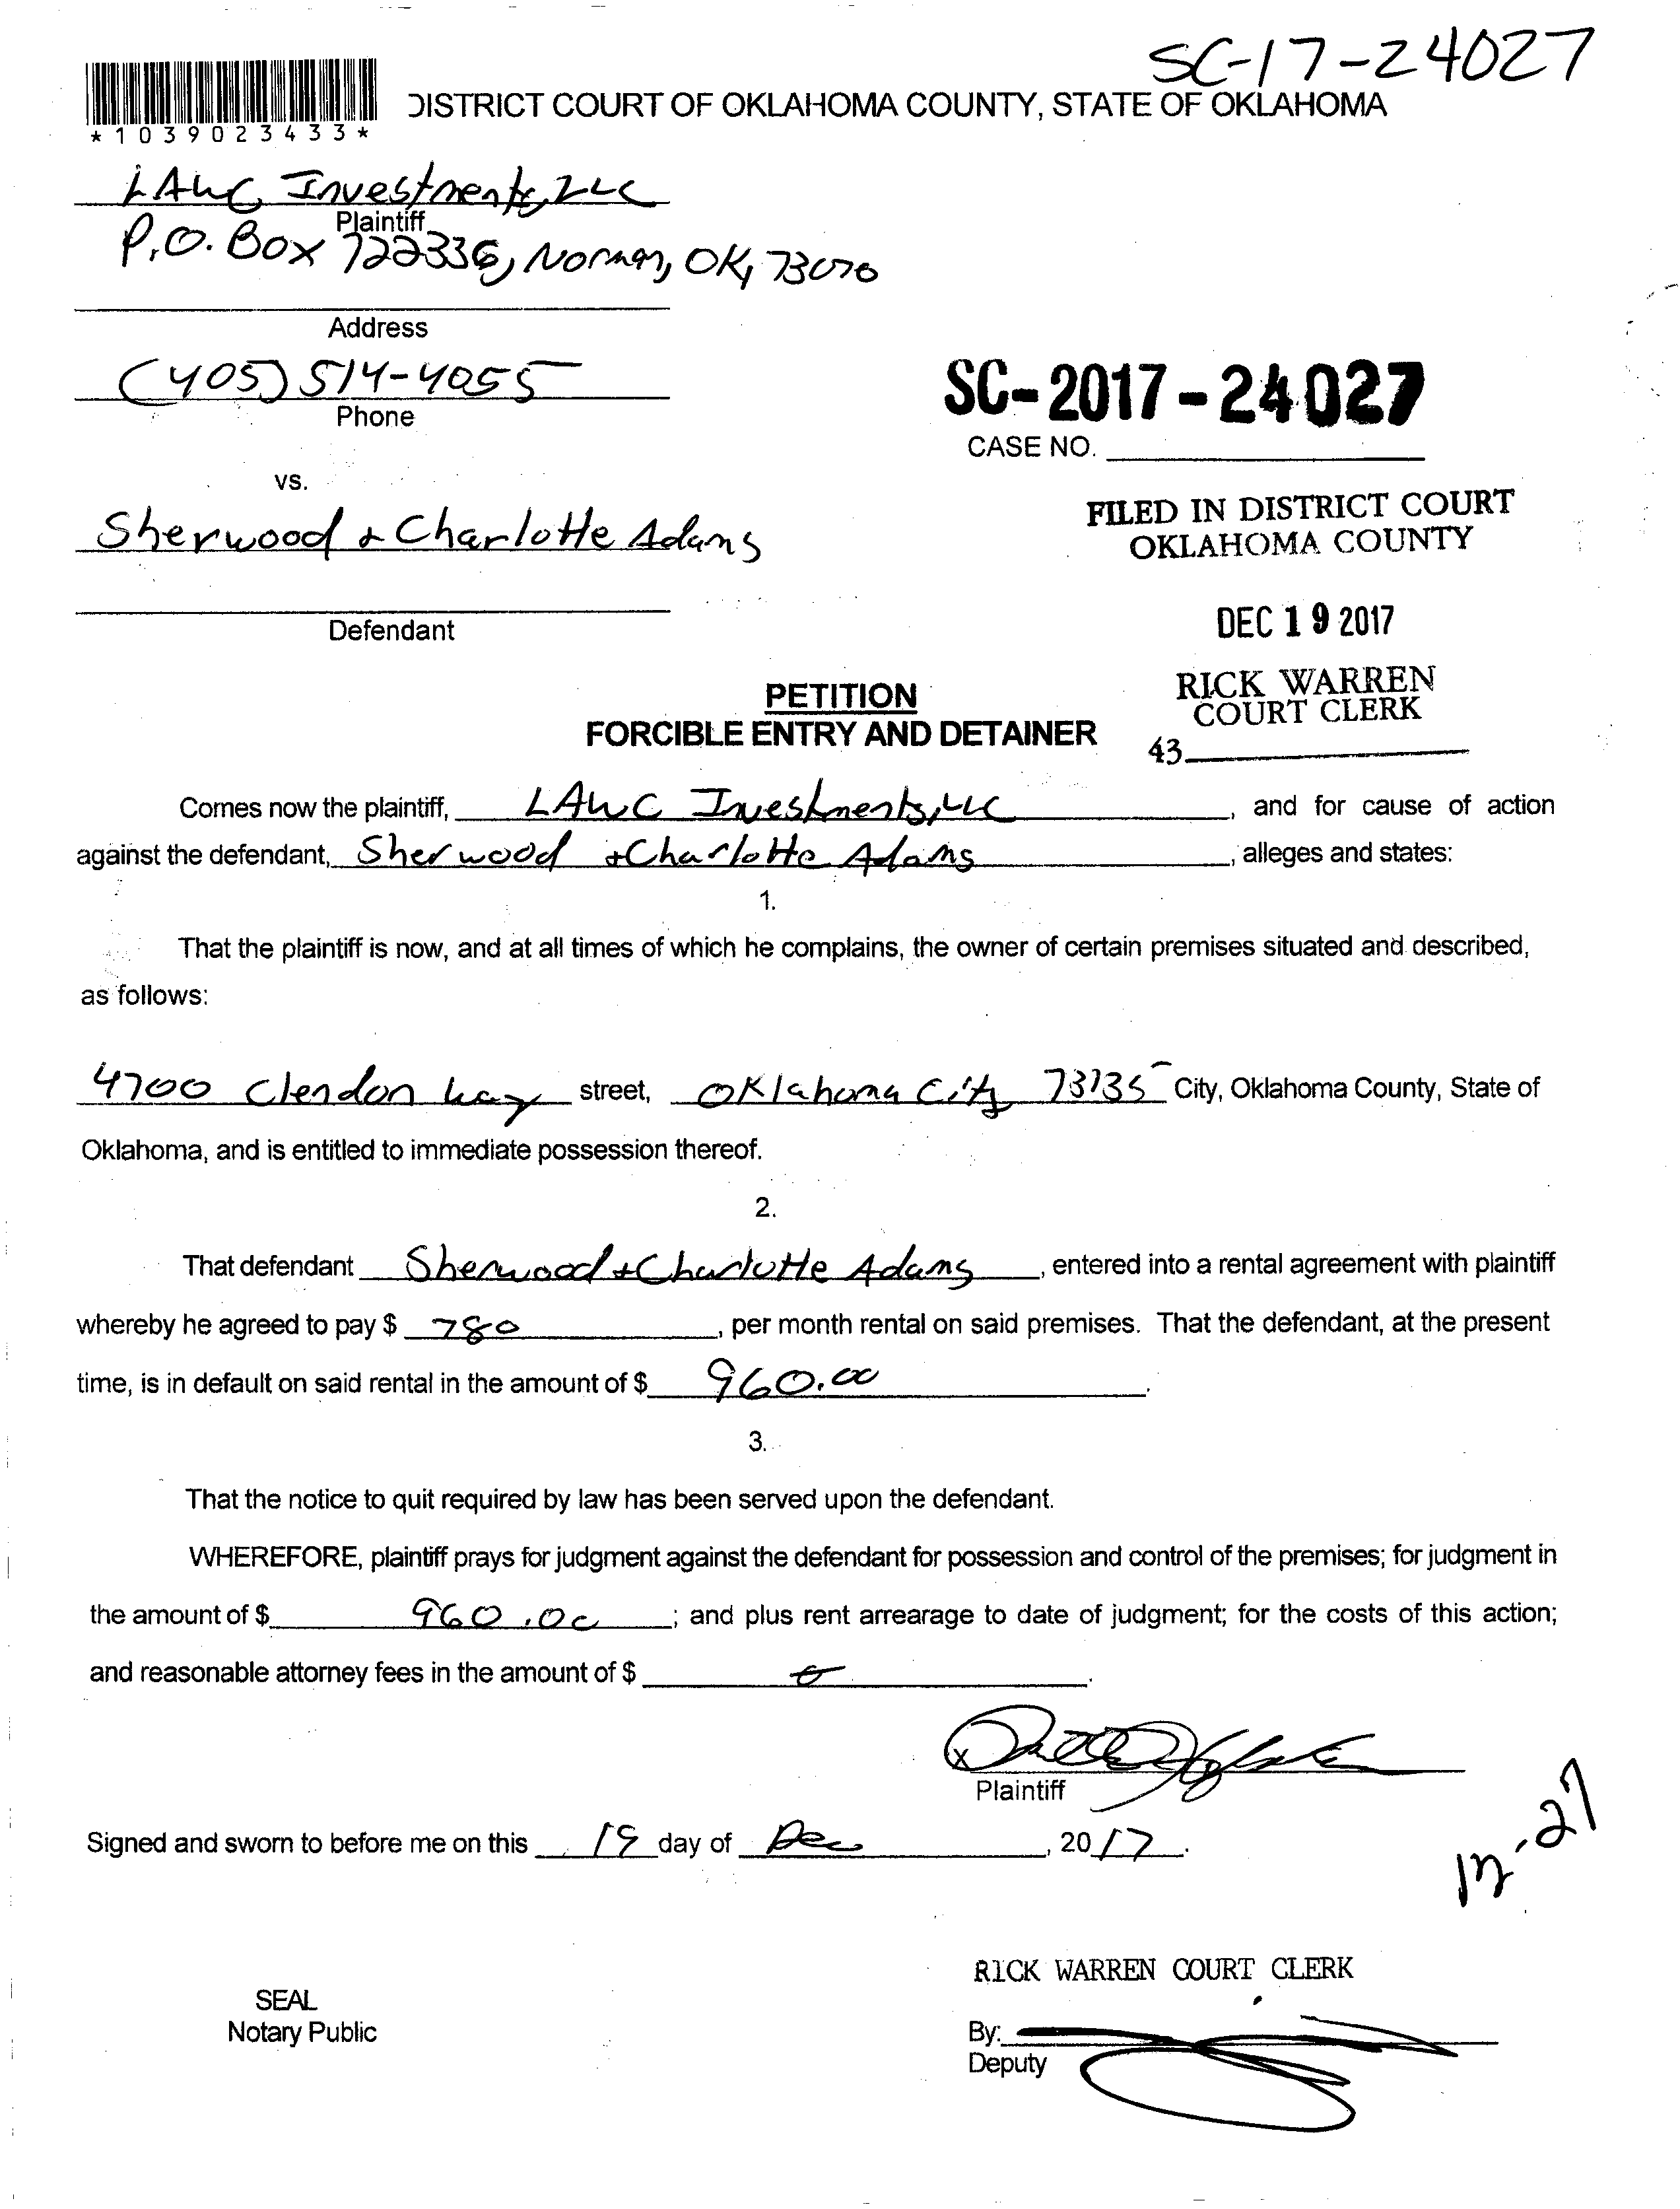 SC-17-24027
*1039023433*
DISTRICT COURT OF OKLAHOMA COUNTY, STATE OF OKLAHOMA
LAWC Investments, LLC
Plaintiff
P.O. Box 722336, Norman, OK, 73070
Address
(405) 514-4055
Phone
SC-2017-24027
CASE NO.
vs.
Sherwood & Charlotte Adams
Defendant
FILED IN DISTRICT COURT
OKLAHOMA COUNTY
DEC 19 2017
RICK WARREN
COURT CLERK
43
PETITION
FORCIBLE ENTRY AND DETAINER
Comes now the plaintiff, LAWC Investments, LLC, and for cause of action
against the defendant, Sherwood & Charlotte Adams, alleges and states:
1.
That the plaintiff is now, and at all times of which he complains, the owner of certain premises situated and described,
as follows:
4700 Clendon Way street, Oklahoma City 73135 City, Oklahoma County, State of
Oklahoma, and is entitled to immediate possession thereof.
2.
That defendant Sherwood & Charlotte Adams, entered into a rental agreement with plaintiff
whereby he agreed to pay $ 780, per month rental on said premises. That the defendant, at the present
time, is in default on said rental in the amount of $ 960.00.
3.
That the notice to quit required by law has been served upon the defendant.
WHEREFORE, plaintiff prays for judgment against the defendant for possession and control of the premises; for judgment in
the amount of $ 960.00; and plus rent arrearage to date of judgment; for the costs of this action;
and reasonable attorney fees in the amount of $ 0.
X
Plaintiff
Signed and sworn to before me on this 19 day of Dec, 2017.
12-27
RICK WARREN COURT CLERK
SEAL
Notary Public
By:
Deputy